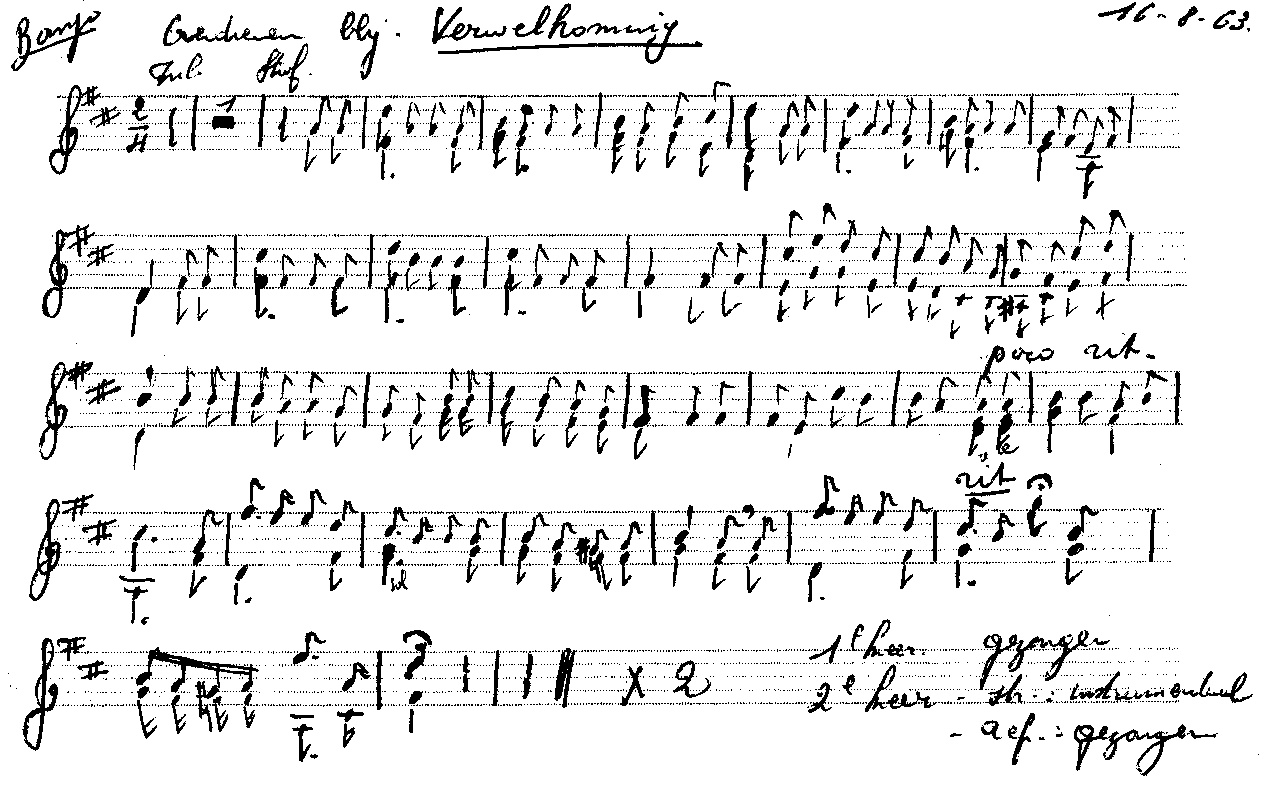 Banjo bly. Verwelkoming 16-8-63.
2/4
poco rit.
rit
x 2
1e keer gezongen
2e keer - str.: instrumentaal
- ref.: gezongen